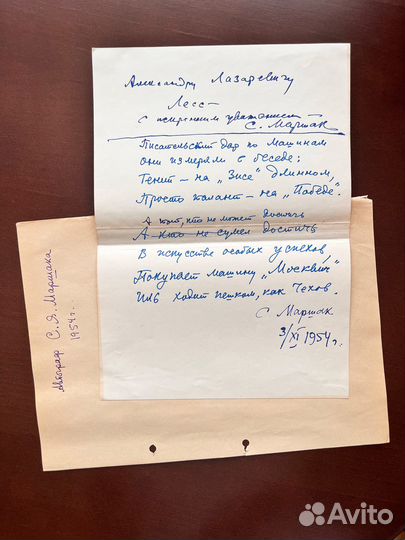 Александру Лазаревичу
Лесс –
с искренним уважением
С. Маршак
Писательский дар по машинам
они измеряли в беседе:
Гений – на „Зисе" длинном,
Просто талант – на „Победе".
А тот, кто не может достичь
А кто не сумел достичь
В искусстве особых успехов,
Покупает машину „Москвич"
Иль ходит пешком, как Чехов.
С. Маршак
3/XI 1954 г.
Автограф С. Я. Маршака
1954 г.
Avito